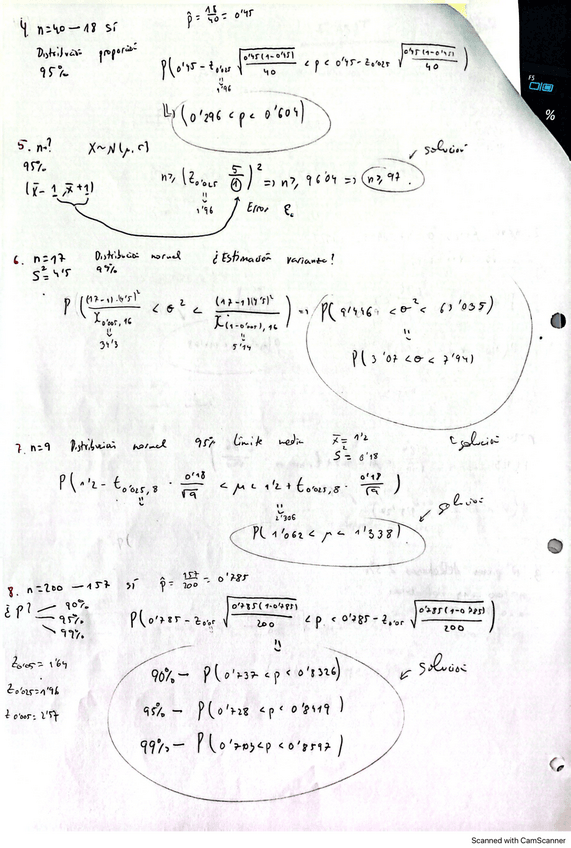 4. n=40 — 18 sí p̂ = 18/40 = 0'45
Distribución proporción
95%
P(0'45 - Z0'025 √(0'45(1-0'45)/40) < p < 0'45 - Z0'025 √(0'45(1-0'45)/40))
1'96
(0'296 < p < 0'604)
5. n? X~N(μ, 5)
95%
(x̄ - 1, x̄ + 1)
n ≥ (Z0'025 5/1)² => n ≥ 96'04 => n ≥ 97.
solución
1'96
Error
6. n=17 Distribución normal ¿Estimación varianza?
S² = 4'5 99%
P((17-1)·(4'5)²/X0'005, 16 < σ² < (17-1)(4'5)²/X(1-0'005), 16) => P(9'446 < σ² < 63'035)
34'3
5'14
P(3'07 < σ < 7'94)
7. n=9 Distribución normal 95% Límite media x̄ = 1'2
S² = 0'18
solución
P(1'2 - t0'025, 8 · 0'18/√9 < μ < 1'2 + t0'025, 8 · 0'18/√9)
2'306
solución
P(1'062 < μ < 1'338).
8. n=200 — 157 sí p̂ = 157/200 = 0'785
¿p?
90%
95%
99%
P(0'785 - Z0'05 √(0'785(1-0'785)/200) < p < 0'785 - Z0'05 √(0'785(1-0'785)/200))
Z0'05 = 1'64
Z0'025 = 1'96
Z0'005 = 2'57
solución
90% — P(0'737 < p < 0'8326)
95% — P(0'728 < p < 0'8419)
99% — P(0'703 < p < 0'8597)
F5
%
Scanned with CamScanner